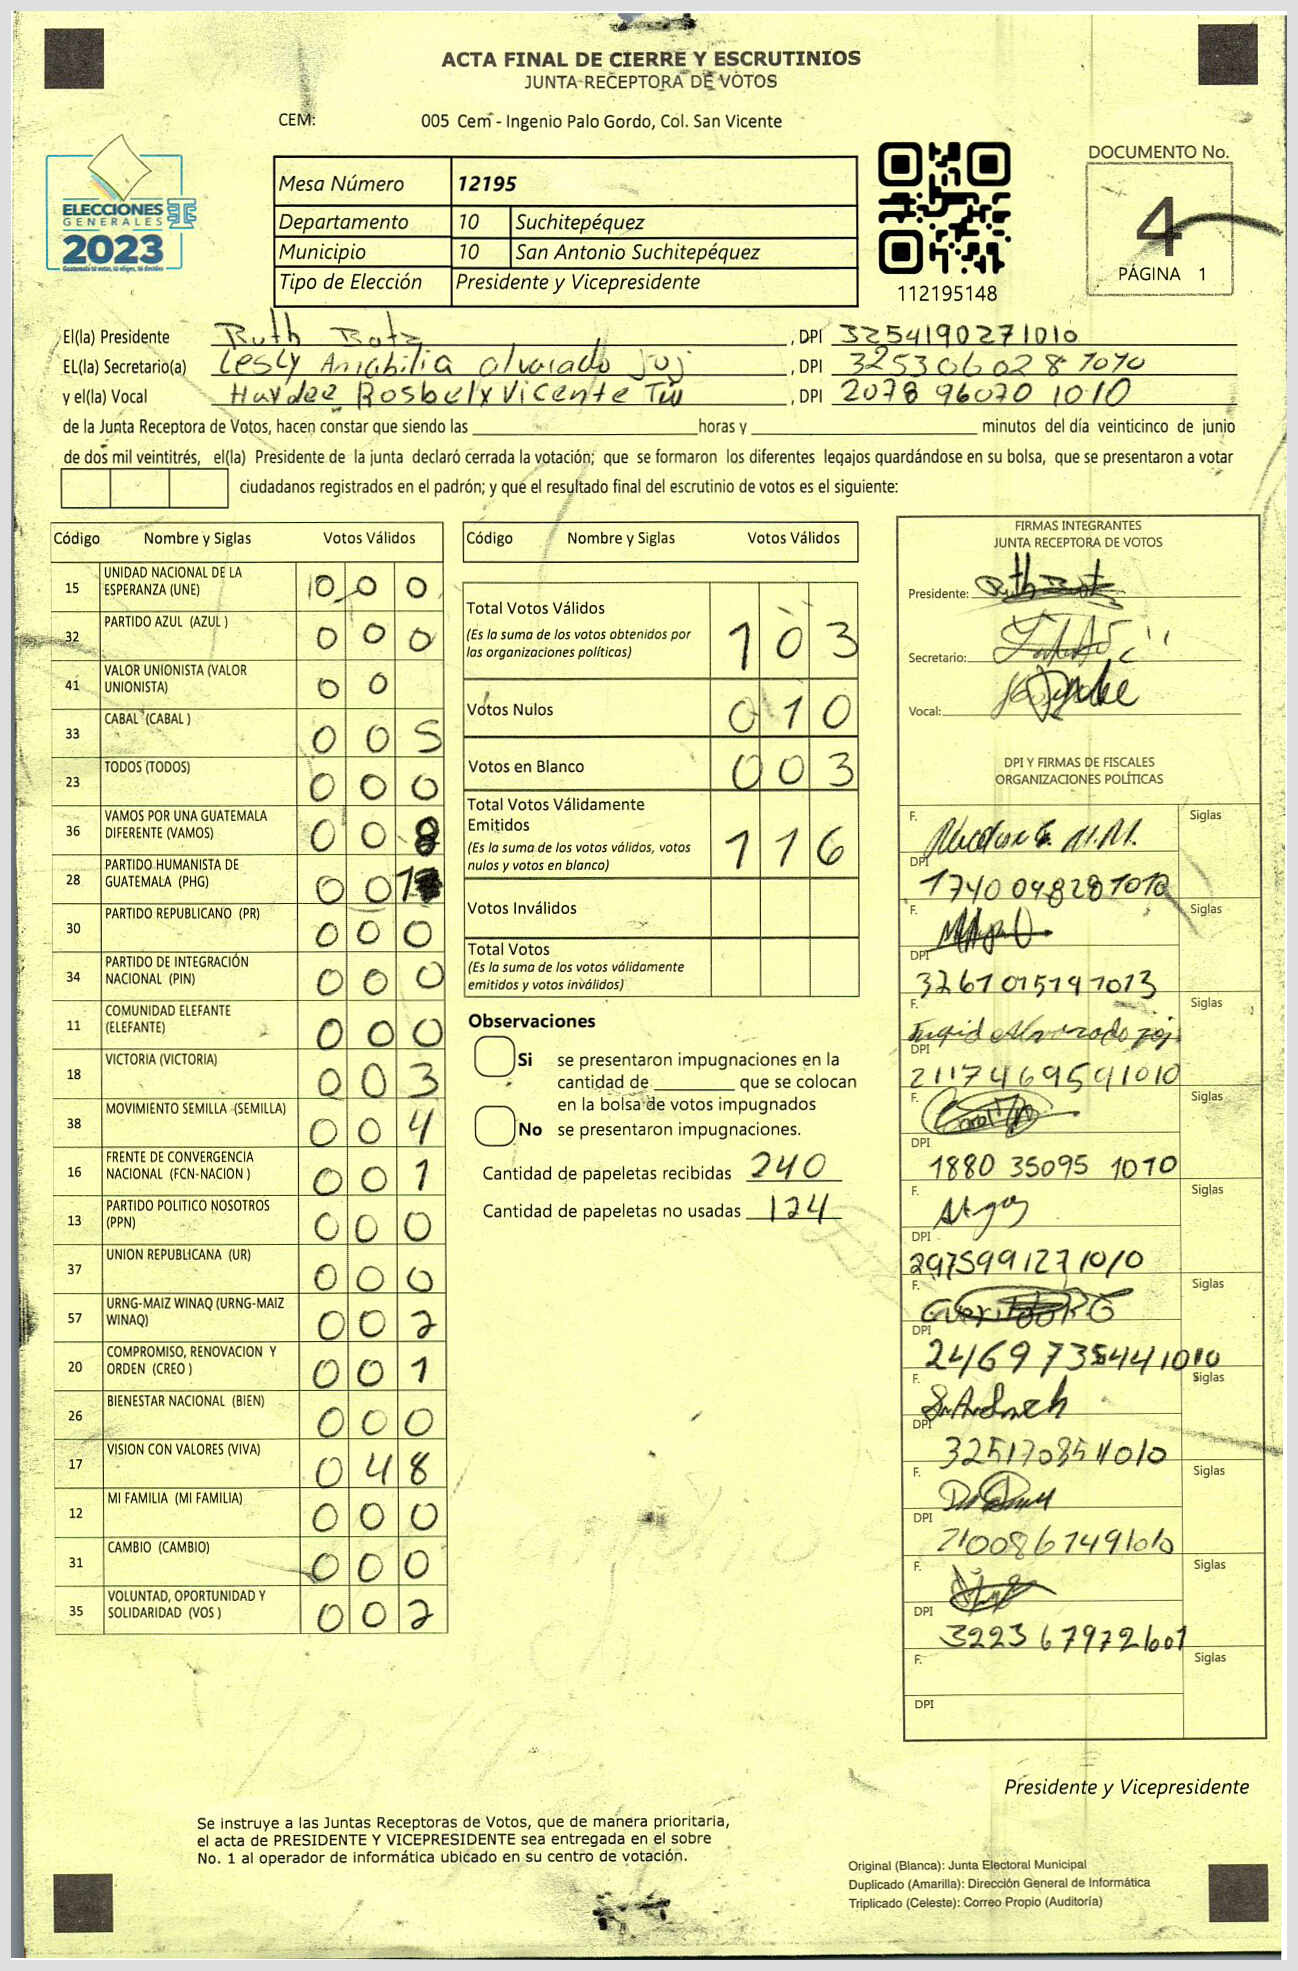 ACTA FINAL DE CIERRE Y ESCRUTINIOS
JUNTA RECEPTORA DE VOTOS
CEM: 005 Cem - Ingenio Palo Gordo, Col. San Vicente
ELECCIONES
GENERALES
2023
Mesa Número 12195
Departamento 10 Suchitepéquez
Municipio 10 San Antonio Suchitepéquez
Tipo de Elección Presidente y Vicepresidente
112195148
DOCUMENTO No.
4
PÁGINA 1
El(la) Presidente Ruth Batz, DPI 3254190271010
EL(la) Secretario(a) Lesly Amabilia alvarado juj, DPI 3253060281010
y el(la) Vocal Haydee Rosbely Vicente Tùi, DPI 2078 96070 1010
de la Junta Receptora de Votos, hacen constar que siendo las horas y minutos del día veinticinco de junio
de dos mil veintitrés, el(la) Presidente de la junta declaró cerrada la votación; que se formaron los diferentes legajos quardándose en su bolsa, que se presentaron a votar
ciudadanos registrados en el padrón; y que el resultado final del escrutinio de votos es el siguiente:
Código Nombre y Siglas Votos Válidos
15 UNIDAD NACIONAL DE LA ESPERANZA (UNE) 10 0 0
32 PARTIDO AZUL (AZUL ) 0 0 0
41 VALOR UNIONISTA (VALOR UNIONISTA) 0 0
33 CABAL (CABAL ) 0 0 5
23 TODOS (TODOS) 0 0 0
36 VAMOS POR UNA GUATEMALA DIFERENTE (VAMOS) 0 0 8
28 PARTIDO HUMANISTA DE GUATEMALA (PHG) 0 0 1
30 PARTIDO REPUBLICANO (PR) 0 0 0
34 PARTIDO DE INTEGRACIÓN NACIONAL (PIN) 0 0 0
11 COMUNIDAD ELEFANTE (ELEFANTE) 0 0 0
18 VICTORIA (VICTORIA) 0 0 3
38 MOVIMIENTO SEMILLA (SEMILLA) 0 0 4
16 FRENTE DE CONVERGENCIA NACIONAL (FCN-NACION ) 0 0 1
13 PARTIDO POLITICO NOSOTROS (PPN) 0 0 0
37 UNION REPUBLICANA (UR) 0 0 0
57 URNG-MAIZ WINAQ (URNG-MAIZ WINAQ) 0 0 2
20 COMPROMISO, RENOVACION Y ORDEN (CREO ) 0 0 1
26 BIENESTAR NACIONAL (BIEN) 0 0 0
17 VISION CON VALORES (VIVA) 0 4 8
12 MI FAMILIA (MI FAMILIA) 0 0 0
31 CAMBIO (CAMBIO) 0 0 0
35 VOLUNTAD, OPORTUNIDAD Y SOLIDARIDAD (VOS ) 0 0 2
Código Nombre y Siglas Votos Válidos
Total Votos Válidos 1 0 3
(Es la suma de los votos obtenidos por
las organizaciones políticas)
Votos Nulos 0 1 0
Votos en Blanco 0 0 3
Total Votos Válidamente
Emitidos 1 1 6
(Es la suma de los votos válidos, votos
nulos y votos en blanco)
Votos Inválidos
Total Votos
(Es la suma de los votos válidamente
emitidos y votos inválidos)
Observaciones
Si se presentaron impugnaciones en la
cantidad de que se colocan
en la bolsa de votos impugnados
No se presentaron impugnaciones.
Cantidad de papeletas recibidas 240
Cantidad de papeletas no usadas 124
FIRMAS INTEGRANTES
JUNTA RECEPTORA DE VOTOS
Presidente: Ruth Batz
Secretario:
Vocal:
DPI Y FIRMAS DE FISCALES
ORGANIZACIONES POLÍTICAS
F. Siglas
DPI 1740 098281010
F. Siglas
DPI 3261015191013
F. Ingid Alvarado juj. Siglas
DPI 2117469591010
F. Siglas
DPI 1880 35095 1010
F. Siglas
DPI 2975991271010
F. Siglas
DPI 2469735441010
F. Siglas
DPI 3251708511010
F. Siglas
DPI 2100867491010
F. Siglas
DPI 3223679721001
F. Siglas
DPI
Presidente y Vicepresidente
Se instruye a las Juntas Receptoras de Votos, que de manera prioritaria,
el acta de PRESIDENTE Y VICEPRESIDENTE sea entregada en el sobre
No. 1 al operador de informática ubicado en su centro de votación.
Original (Blanca): Junta Electoral Municipal
Duplicado (Amarilla): Dirección General de Informática
Triplicado (Celeste): Correo Propio (Auditoría)